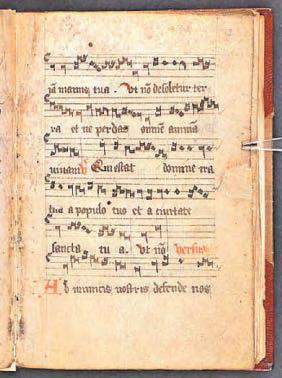 nā manus tua . Ut nō desoletur ter
ra et ne perdas omnē animā
uiuam Qui est at domine ira
tua a populo tuo et a ciuitate
sancta tu a . ut nō versus
Ab inimicis nostris defende nos